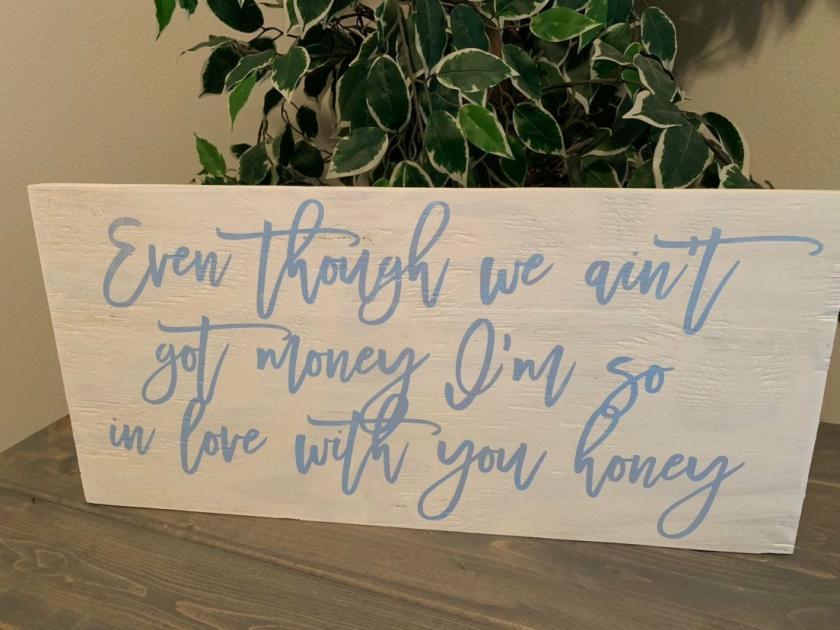 Even though we ain't
got money I'm so
in love with you honey